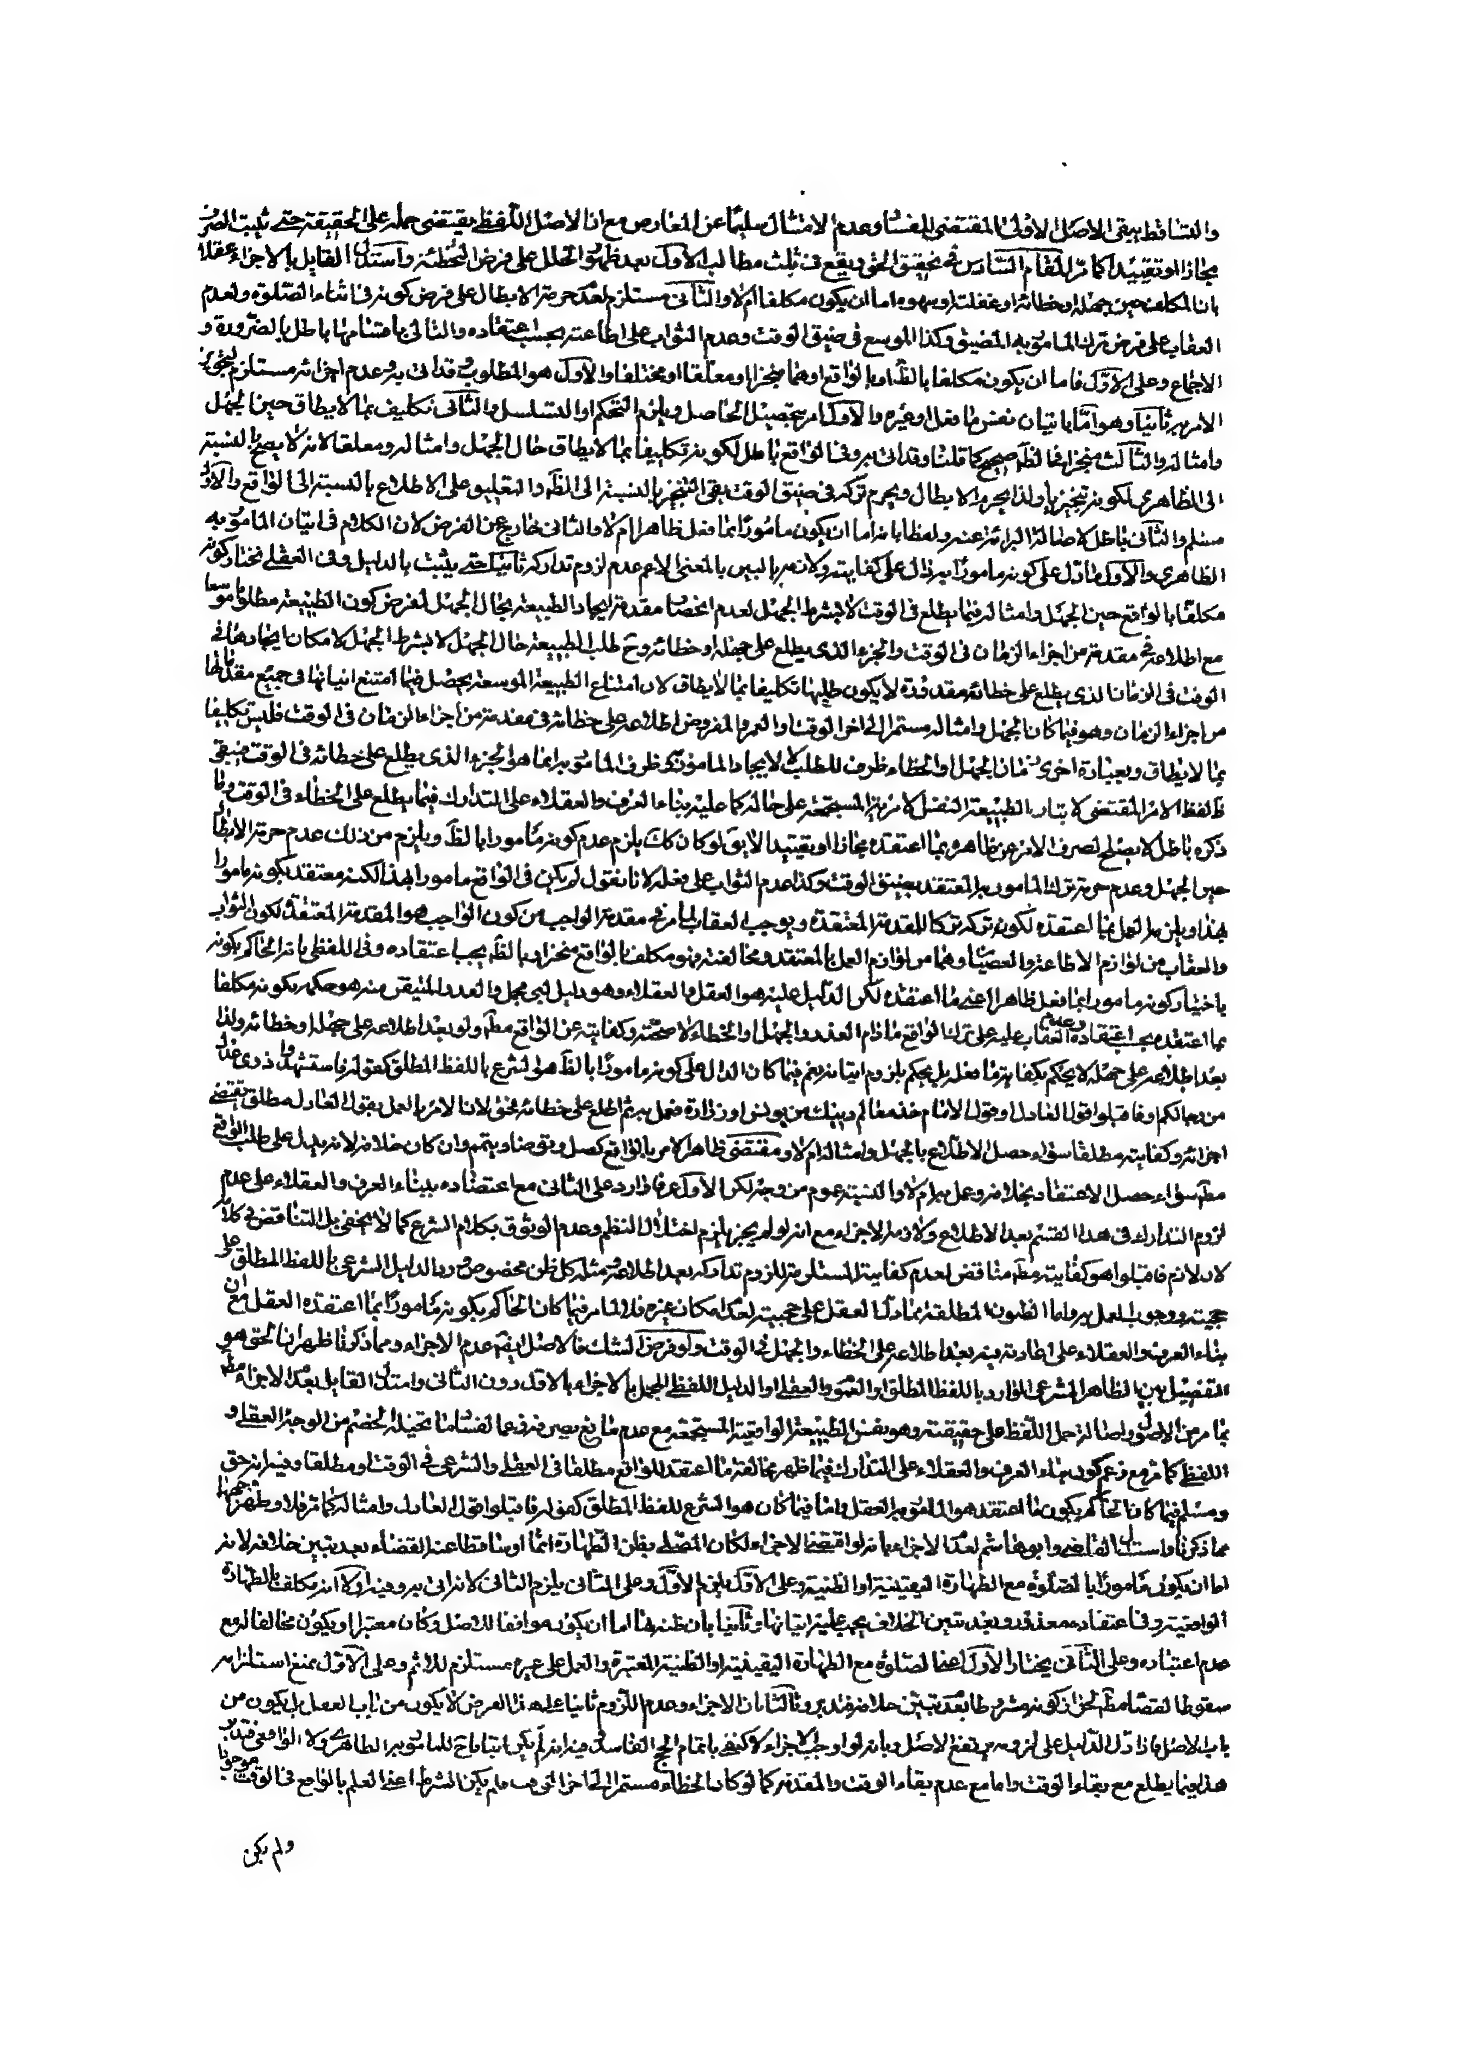 والتساقط يبقى الاصل الاولى المقتضى للفساد وعدم الامتثال سليما عن المعارض مع ان الاصل اللفظى يقتضى حمله على الحقيقة حتى يثبت الصرف
مجازا او تقييدا كما مر المقام السادس فى تحقيق الحق ويقع فى ثلث مطالب الاول بعد ظهور الخلل على فرض التخطئة واستدل القايل بالاجزاء عقلا
بان المكلف حين جهله او خطائه او غفلته او سهوه اما ان يكون مكلفا ام لا والثانى مستلزم لعدم حرمة الابطال على فرض كونه فى اثناء الصلوة ولعدم
العقاب على فرض ترك المامور به المضيق وكذا الموسع فى ضيق الوقت وعدم الثواب على اطاعته بحسب اعتقاده والتالى باقسامها باطل بالضرورة و
الاجماع وعلى الاول فاما ان يكون مكلفا بالظ او بالواقع او هما منجزا او معلقا او مختلفا والاول هو المطلوب فقد اتى به وعدم اجزائه مستلزم لتجويز
الامر به ثانيا وهو اما باتيان نفس ما فعل او غيره والاول امر بتحصيل الحاصل ويلزم التحكم او التسلسل والثانى تكليف بما لا يطاق حين الجهل
وامثاله والثالث منجزا فالظ صحيح كما قلنا وقد اتى به وفى الواقع باطل لكونه تكليفا بما لا يطاق حال الجهل وامثاله ومعلقا لانه لا يصح بالنسبة
الى الظاهرى لكونه تنجيزيا ولذا يحرم الابطال ويحرم تركه فى ضيق الوقت بقى التنجيز بالنسبة الى الظ والتعليق على الاطلاع بالنسبة الى الواقع والاول
مسلم والثانى باطل لاصالة البرائة عنه ولمطالبة اما ان يكون مامورا بما فعل ظاهرا ام لا والثانى خارج عن الفرض لان الكلام فى اتيان المامور به
الظاهرى والاول ما دل على كونه مامورا به دال على كفايته ولازمه بالبين بالمعنى الاعم عدم لزوم تداركه ثانيا حتى يثبت بالدليل وفى العقلى نختار كونه
مكلفا بالواقع حين الجهل وامثاله فيما يطلع فى الوقت لا بشرط الجهل لعدم انحصار مقدمة ايجاد الطبيعة بحال الجهل لفرض كون الطبيعة مطلوبا موسعا
مع اطلاعه فى مقدمة من اجزاء الزمان فى الوقت والجزء الذى يطلع على جهله او خطائه وح طلب الطبيعة حال الجهل لا بشرط الجهل لامكان ايجادها فى
الوقت فى الزمان الذى يطلع على خطائه مقدورة لا يكون طلبها تكليفا بما لا يطاق لان امتناع الطبيعة الموسعة يحصل فيما امتنع اتيانها فى جميع مقدماتها
من اجزاء الزمان وهو فيما كان الجهل وامثاله مستمرا الى اخر الوقت او العمر والمفروض اطلاعه على خطائه فى مقدمة من اجزاء الزمان فى الوقت فليس تكليفا
بما لا يطاق وبعبارة اخرى زمان الجهل والخطاء ظرف للطلب لا لايجاد المامور به وظرف المامور به انما هو الجزء الذى يطلع على خطائه فى الوقت فيبقى
ظ لفظ الامر المقتضى لاتيان الطبيعة النفس الامرية المستجمعة على حاله كما عليه بناء العرف والعقلاء على التدارك فيما يطلع على الخطاء فى الوقت وما
ذكره باطل لا يصلح لصرف الامر عن ظاهره بما اعتقده مجازا او تقييدا لا يق لو كان كك يلزم عدم كونه مامورا بالظ ويلزم من ذلك عدم حرمة الابطال
حين الجهل وعدم حرمة ترك المامور به المعتقد بضيق الوقت وكذا عدم الثواب على فعله لانا نقول لم يكن فى الواقع مامورا بهذا لكنه معتقد بكونه مامورا
بهذا ويلزمه العمل بما اعتقده لكونه تركه تركا للمقدمة المعتقدة ويوجب العقاب لما مر فى مقدمة الواجب من كون الواجب هو المقدمة المعتقدة ولكون الثواب
والعقاب من لوازم الاطاعة والعصيان وهما من لوازم العمل بالمعتقد ومخالفته فهو مكلف بالواقع منجزا وبالظ بحسب اعتقاده وفى اللفظى بان الحاكم بكونه
باختيار كونه مامورا بما فعل ظاهرا اعنى ما اعتقده لكن الدليل عليه هو العقل والعقلاء وهو دليل لبى مجمل والقدر المتيقن منه هو حكمه بكونه مكلفا
بما اعتقده بحسب اعتقاده وعدم العقاب عليه على ترك الواقع ما دام العذر والجهل او الخطاء لا صحته وكفايته عن الواقع مط ولو بعد اطلاعه على جهله او خطائه ولذا
بعد اطلاعه على جهله لا يحكم بكفاية ما فعله بل يحكم بلزوم اتيانه نعم فيما كان الدال على كونه مامورا بالظ هو الشرع باللفظ المطلق كقوله فاستشهدوا ذوى عدل
من رجالكم وفاقبلوا قول العادل وقول الامام خذ معالم دينك من يونس او زرارة فعمل به ثم اطلع على خطائه فحق لان الامر بالعمل بقول العادل مطلق يقتضى
اجزائه وكفايته مطلقا سواء حصل الاطلاع بالجهل وامثاله ام لا ومقتضى ظاهر الامر بالواقع كصل وتوضا وتيمم وان كان خلافه لانه يدل على طلب الواقع
مط سواء حصل الاعتقاد بخلافه وعمل به ام لا والنسبة عموم من وجه لكن الاول عرفا وارد على الثانى مع اعتضاده ببناء العرف والعقلاء على عدم
لزوم التدارك فى هذا القسم بعد الاطلاع ولازمه الاجزاء مع انه لو لم يجز يلزم اختلال النظم وعدم الوثوق بكلام الشرع كما لا يخفى بل التناقض فى كلامه
لان لازم فاقبلوا هو كفايته مط مناقض لعدم كفايته المستلزمة للزوم تداركه بعد اطلاعه ومثله كل ظن مخصوص ورد الدليل الشرعى باللفظ المطلق على
حجيته ووجوب العمل به واما الظنون المطلقة مما دل العقل على حجيته لعدم امكان غيره فلا لما مر فيما كان الحاكم بكونه مامورا بما اعتقده العقل مع ان
بناء العرف والعقلاء على اعادته فيه بعد اطلاعه على الخطاء والجهل فى الوقت ولو فرض الشك فالاصل ايضا عدم الاجزاء ومما ذكرنا ظهر ان الحق هو
التفصيل بين الظاهر الشرعى الوارد باللفظ المطلق او العموم والعقلى او الدليل اللفظى المجمل بالاجزاء بالاول دون الثانى واستدل القايل بعدم الاجزاء مط
بما مر من الاصول واصالة حمل اللفظ على حقيقته وهو نفس الطبيعة الواقعية المستجمعة مع عدم مانع يصرفه زعما لفساد ما تخيله الخصم من الوجه العقلى و
اللفظى كما مر مع زعم كون بناء العرف والعقلاء على التدارك فيما ظهر مخالفة ما اعتقد للواقع مطلقا فى العقلى والشرعى فى الوقت او مطلقا وفيه انه حق
ومسلم فيما كان الحاكم بكون ما اعتقد هو المامور به العقل واما فيما كان هو الشرع للفظ المطلق كقوله فاقبلوا قول العادل وامثاله كما مر فلا وظهر وجهها
مما ذكرنا واستدل القاضى وابو هاشم لعدم الاجزاء بانه لو اقتضى الاجزاء لكان المصلى بظن الطهارة اثما او ساقطا عنه القضاء بعد تبين خلافه لانه
اما ان يكون مامورا بالصلوة مع الطهارة اليقينية او الظنية وعلى الاول يلزم الاول وعلى الثانى يلزم الثانى لانه اتى به وفيه اولا انه مكلف بالطهارة
الواقعية وفى اعتقاده معذور وبعد تبين الخلاف يجب عليه اتيانها وثانيا بان ظنه هذا اما ان يكون موافقا للاصل وكان معتبرا او يكون مخالفا له مع
عدم اعتباره وعلى الثانى يختار الاول اعنى الصلوة مع الطهارة اليقينية او الظنية المعتبرة والعمل على غيره مستلزم للاثم وعلى الاول بمنع استلزامه
سقوط القضاء مط لجواز كونه مشروطا بعدم تبين خلافه فتدبر وثالثا بان الاجزاء وعدم اللزوم ثانيا على هذا الفرض لا يكون من باب العقل بل يكون من
باب الاصل فاذا دل الدليل على لزومه يرتفع الاصل وبانه لو اوجب الاجزاء لاكتفى باتمام الحج الفاسد وفيه انه لم يكن اتيانا تاما للمامور به الظاهرى ولا الواقعى فتدبر
هذا فيما يطلع مع بقاء الوقت واما مع عدم بقاء الوقت والمقدمة كما لو كان الخطاء مستمرا الى اخر الوقت فلم يكن الشرط اعنى العلم بالواقع فى الوقت موجودا
ولم يكن